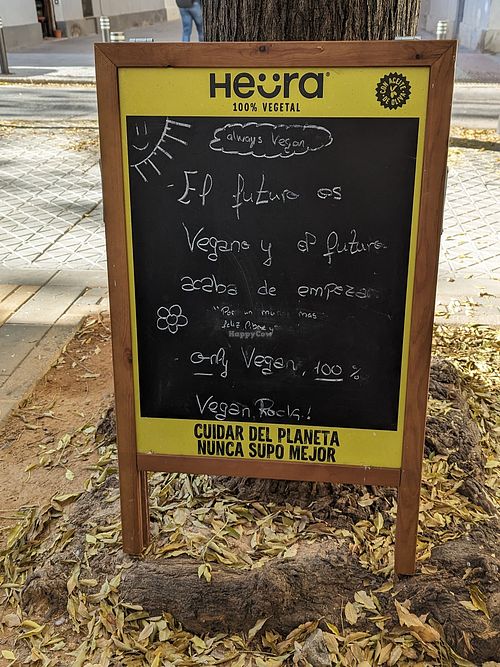 Heüra
100% VEGETAL
CON ACEITE DE OLIVA
always Vegan
- El futuro es
Vegano y el futuro
acaba de empezar
"Por un mundo mas
feliz, libre y
HappyCow
- only Vegan, 100%
Vegan Rock!
CUIDAR DEL PLANETA
NUNCA SUPO MEJOR